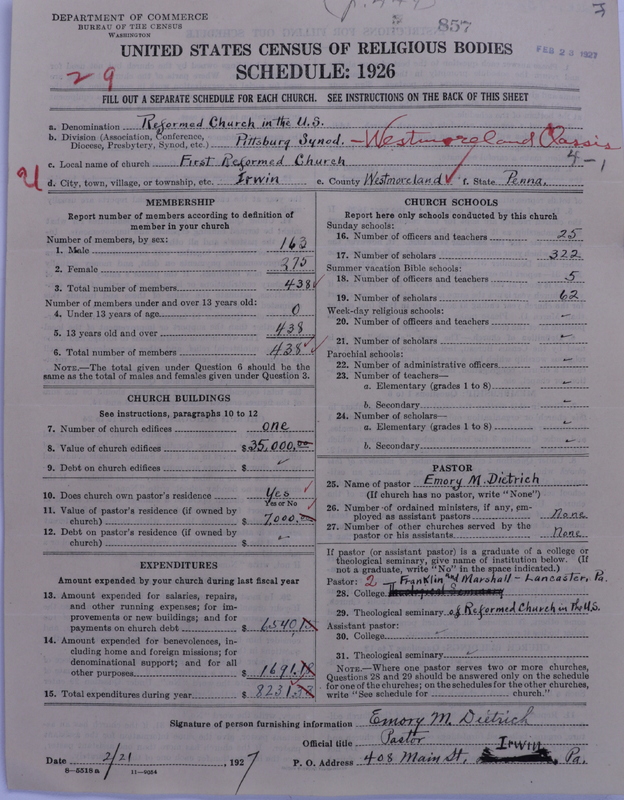 DEPARTMENT OF COMMERCE
BUREAU OF THE CENSUS
WASHINGTON
857
FEB 23 1927
UNITED STATES CENSUS OF RELIGIOUS BODIES
SCHEDULE: 1926
29
FILL OUT A SEPARATE SCHEDULE FOR EACH CHURCH. SEE INSTRUCTIONS ON THE BACK OF THIS SHEET
a. Denomination Reformed Church in the U.S.
b. Division (Association, Conference, Diocese, Presbytery, Synod, etc.) Pittsburg Synod. - Westmoreland Classis
4-1
c. Local name of church First Reformed Church
d. City, town, village, or township, etc. Irwin e. County Westmoreland f. State Penna.
MEMBERSHIP
Report number of members according to definition of
member in your church
Number of members, by sex:
1. Male 163
2. Female 275
3. Total number of members 438
Number of members under and over 13 years old:
4. Under 13 years of age 0
5. 13 years old and over 438
6. Total number of members 438
NOTE.—The total given under Question 6 should be the
same as the total of males and females given under Question 3.
CHURCH BUILDINGS
See instructions, paragraphs 10 to 12
7. Number of church edifices one
8. Value of church edifices $35,000.00
9. Debt on church edifices $
10. Does church own pastor's residence Yes
Yes or No
11. Value of pastor's residence (if owned by
church) $ 7,000.00
12. Debt on pastor's residence (if owned by
church) $
EXPENDITURES
Amount expended by your church during last fiscal year
13. Amount expended for salaries, repairs,
and other running expenses; for im-
provements or new buildings; and for
payments on church debt $ 6540
14. Amount expended for benevolences, in-
cluding home and foreign missions; for
denominational support; and for all
other purposes $ 1691
15. Total expenditures during year $ 8231
CHURCH SCHOOLS
Report here only schools conducted by this church
Sunday schools:
16. Number of officers and teachers 25
17. Number of scholars 322
Summer vacation Bible schools:
18. Number of officers and teachers 5
19. Number of scholars 62
Week-day religious schools:
20. Number of officers and teachers
21. Number of scholars
Parochial schools:
22. Number of administrative officers
23. Number of teachers—
a. Elementary (grades 1 to 8)
b. Secondary
24. Number of scholars—
a. Elementary (grades 1 to 8)
b. Secondary
PASTOR
25. Name of pastor Emory M. Dietrich
(If church has no pastor, write "None")
26. Number of ordained ministers, if any, em-
ployed as assistant pastors None
27. Number of other churches served by the
pastor or his assistants None
If pastor (or assistant pastor) is a graduate of a college or
theological seminary, give name of institution below. (If
not a graduate, write "No" in the space indicated.)
Pastor: 2 Franklin and Marshall - Lancaster, Pa.
28. College Theological Seminary
29. Theological seminary of Reformed Church in the U.S.
Assistant pastor:
30. College
31. Theological seminary
NOTE.—Where one pastor serves two or more churches,
Questions 28 and 29 should be answered only on the schedule
for one of the churches; on the schedules for the other churches,
write "See schedule for church."
Signature of person furnishing information Emory M. Dietrich
Official title Pastor
Date 2/21, 1927 P. O. Address 408 Main St, Irwin, Pa.
8-5518a 11-9084